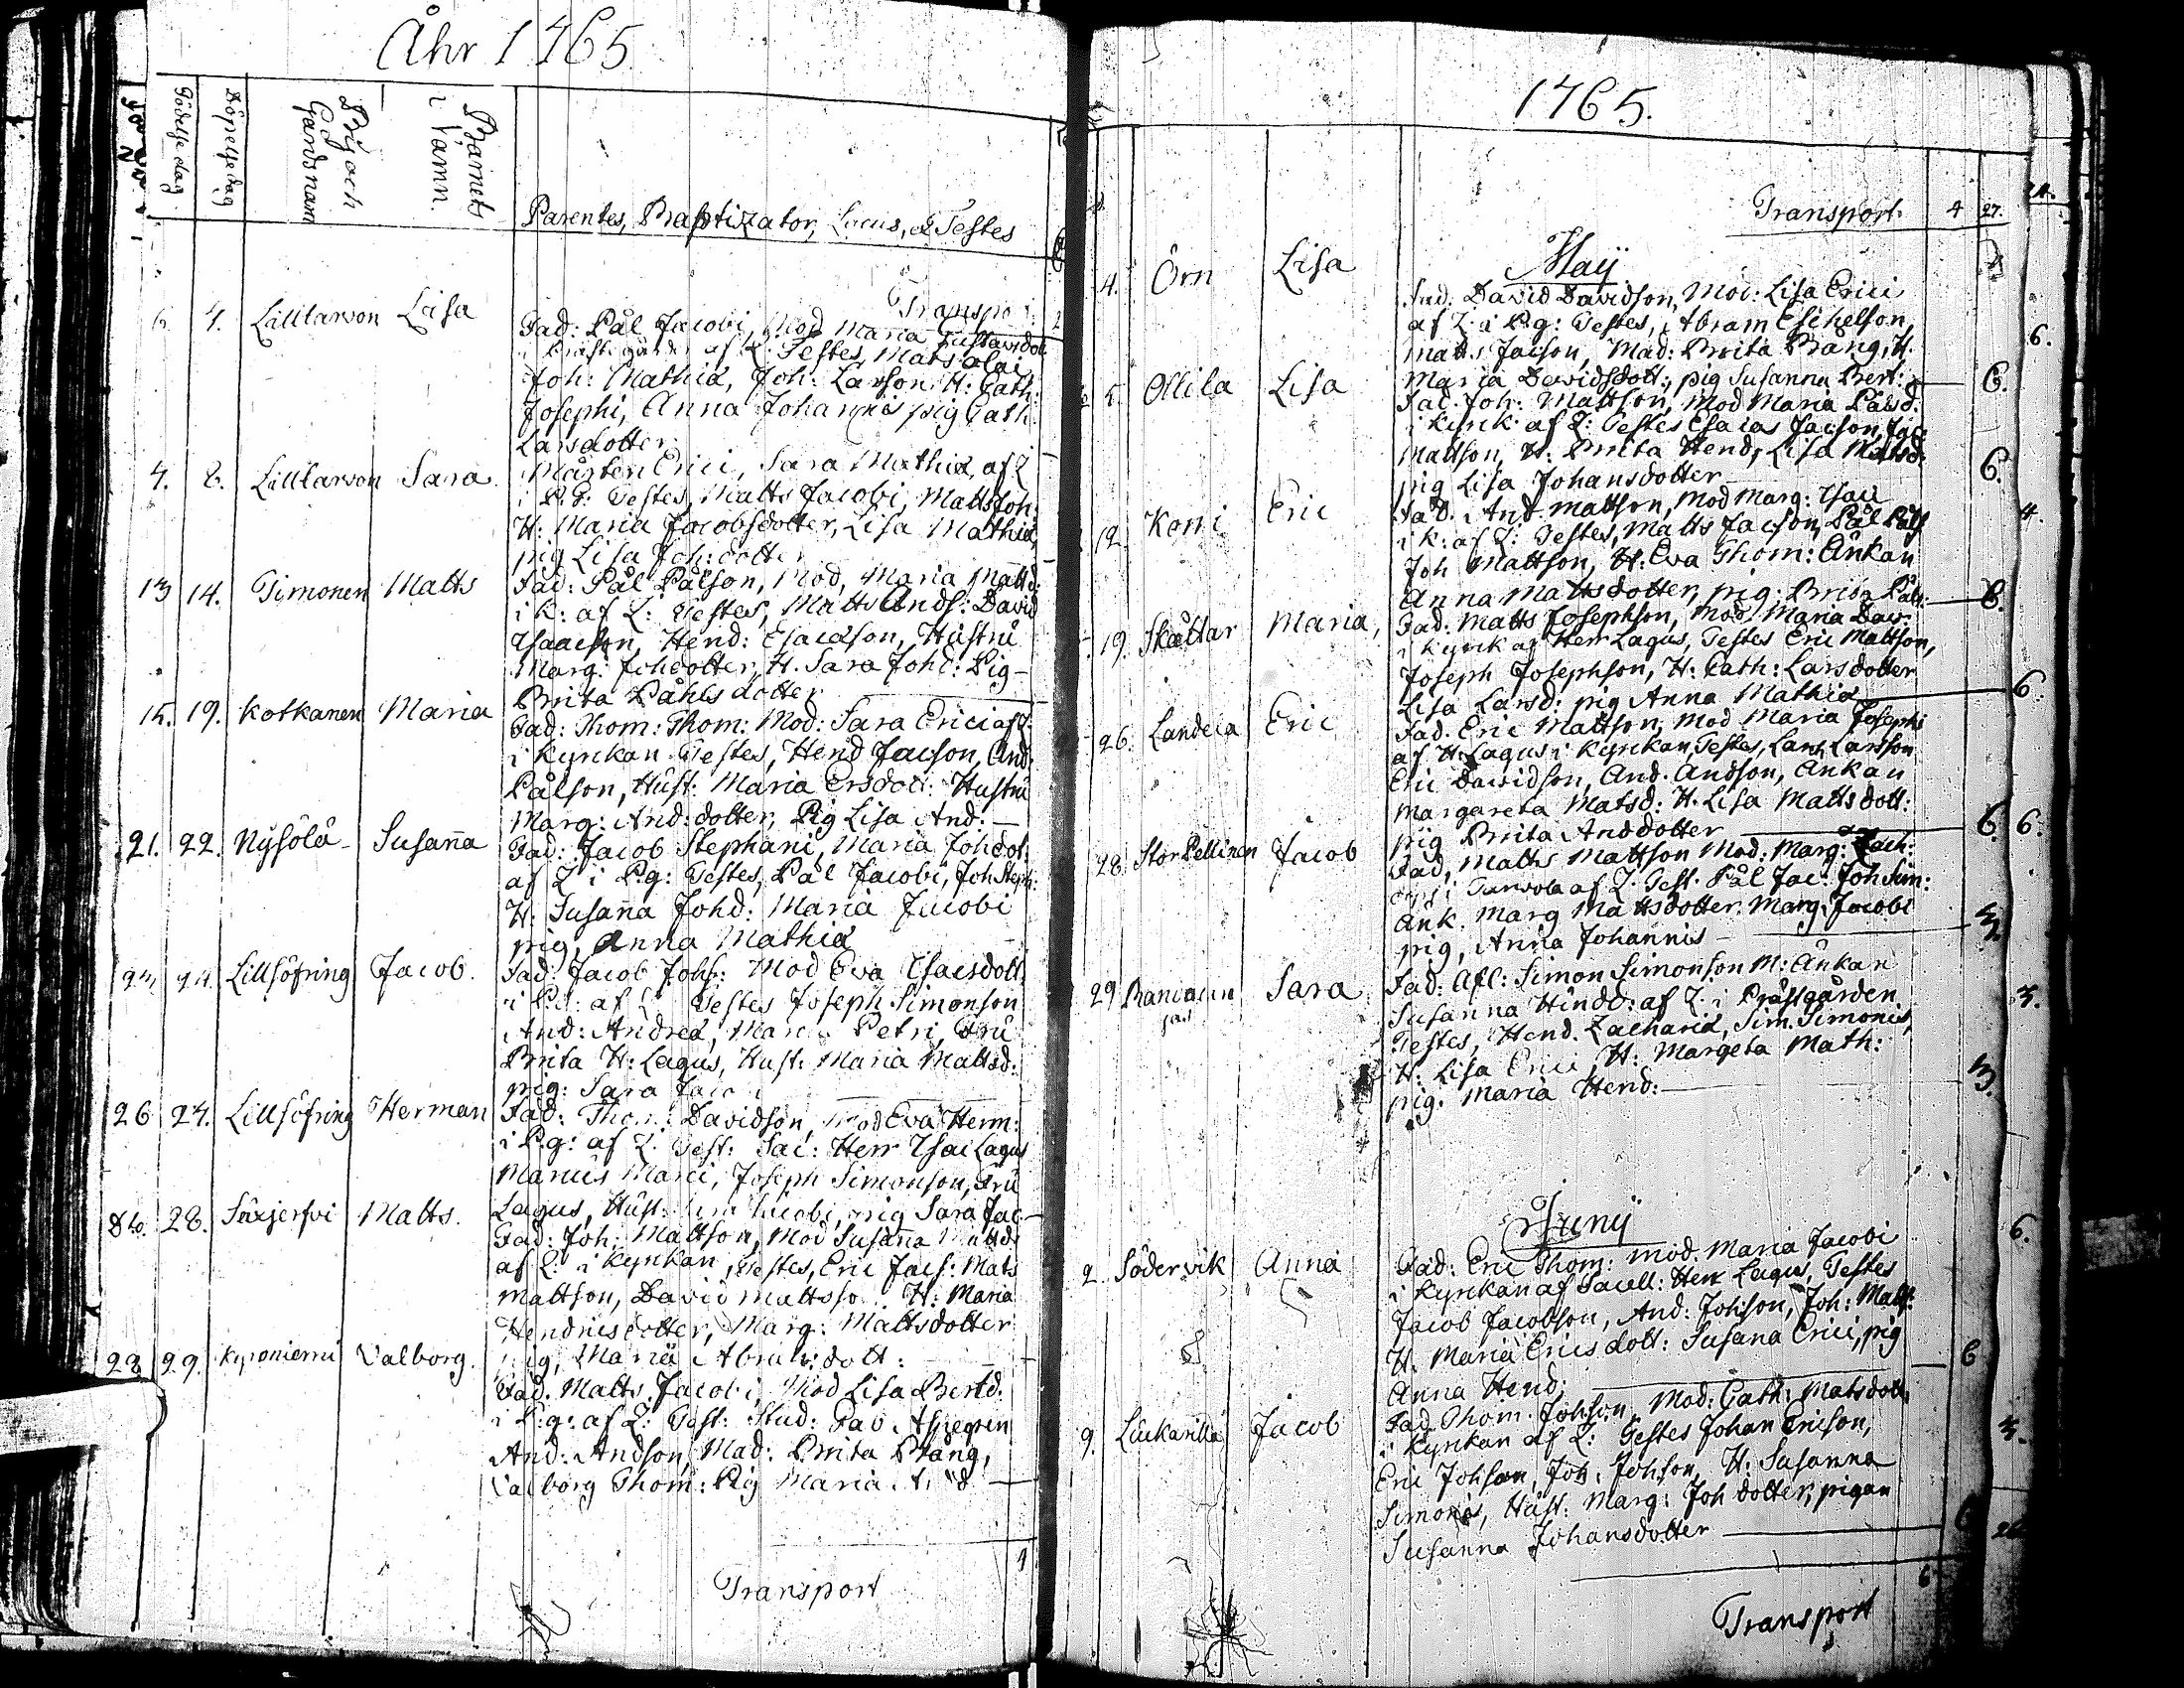 Åhr 1765
Födelse dag
Döpelse dag
By och
Gårds namn
Barnets
Namn.
Parentes, Baptizator, Locus, et Testes
Transpo
4. Lilltarvon Lisa
Fad: Pål Jacobi, Mod Maria Gustavsdott
af Z: Testes, Mats Olai
Joh: Mathiæ, Joh: Larson, H: Cath:
Josephi, Anna Johannis pig Cath:
Larsdotter
7. 8. Lilltarvon Sara
Mårten Erici, Sara Mathiæ, af Z
i P.g: Testes, Matts Jacobi, Matts Joh:
H: Maria Jacobsdotter, Lisa Mathiæ,
pig Lisa Joh: dotter
13 14. Timonen Matts
Fad: Pål Pålson, Mod, Maria Mattsd:
i K: af Z: Testes, Matts Ands: David
Isaacson, Hend: Esaiason, Hustru
Marg: Johdotter, H. Sara Johd: Pig
Brita Påhlsdotter
15. 19. Kotkanen Maria
Fad: Thom: Thom: Mod: Sara Erici af Z:
i Kyrckan Testes, Hend Jacson, And:
Pålson, Hust: Maria Ersdott: Hustru
Marg: And: dotter, Pig Lisa And:
21. 22. Nysölä Susanna
Fad: Jacob Stephani, Maria Johdot:
af Z i P.g: Testes, Pål Jacobi, Joh Steph:
H. Susanna Johd: Maria Jacobi
pig, Anna Mathiæ
24. Lillsöfring Jacob.
Fad: Jacob Johs: Mod Eva Isacsdott,
i P.g: af Z Testes Joseph Simonson
And: Andreæ, Petri, Fru
Brita H: Lagus, Hust: Maria Mattsd:
pig: Sara
26 27. Lillsöfring Herman
Fad: Thom: Davidson, Mod Eva Herm:
i P.g: af Z. Test: Sac: Herr Isac Lagus
Marcus Marci, Joseph Simonson, Fru
Lagus, Hust: Jacobi, pig Sara Jac
28. Särjerfvi Matts.
Fad: Joh: Mattson, Mod Susanna Mattsd:
af Z: i Kyrckan, Testes, Eric Jacs: Mats
Mattson, David Mattsso H: Maria
Hendricsdotter, Marg: Mattsdotter
pig, Maria Abra dott:
28 29. Kyroniemi Valborg.
Fad. Matts Jacobi, Mod Lisa Bertd:
i P.g: af Z: Test: Stud: Gab
And: Andson, Mad: Brita Prång,
Valborg Thom: Pig Maria
Transport
1765.
Transport 4 27.
Maij
4. Örn Lisa
Fad: David Davidson, Mod: Lisa Erici
af Z: i P.g: Testes, Abram Eschelson,
Matts Jacson, Mad: Brita Prång, H.
Maria Davidsdott:, pig Susanna Bert: 6.
5. Ollila Lisa
Fad: Joh: Mattson, Mod Maria Pålsd:
i Kyrck: af Z: Testes Esaias Jacson, Jac
Mattson, H. Brita Hend, Lisa Mattsd:
pig Lisa Johansdotter 6.
12. Konni Eric
Fad: And Mattson, Mod Marg: Isac
i K: af Z: Testes, Matts Jacson, Pål Påls
Joh Mattson, H. Eva Thom: Änkan
Anna Mattsdotter, pig: Brita Påls: 6.
19. Skättar Maria,
Fad: Matts Josephson, Mod, Maria Dav:
i Kyrck af Herr Lagus, Testes Eric Mattson,
Joseph Josephson, H: Cath: Larsdotter
Lisa Larsd: pig Anna Mathiæ 6.
26. Landela Eric
Fad. Eric Mattson, Mod Maria Josephi
af H: Lagus i Kyrckan, Testes, Lars Larsson
Eric Davidson, And. Andson, Änkan
Margareta Matsd: H. Lisa Mattsdott:
pig Brita Anddotter 6. 6.
28. Stor Pellinen Jacob
Fad, Matts Mattson Mod: Marg: Zach:
i af Z. Test. Pål Jac: Joh Sim:
Änk. Marg Mattsdotter. Marg: Jacobi
pig, Anna Johannis 3.
29 Sara
Fad: Afl: Simon Simonson M: Änkan
Susanna Hindd: af Z: i Prästgården
Testes, Hend. Zachariæ, Sim. Simonis,
H: Lisa Erici, H: Margeta Math:
pig: Maria Hend: 3.
Junij
2. Södervik Anna
Fad: Eric Thom: Mod. Maria Jacobi
i Kyrckan af Sacell: Herr Lagus, Testes
Jacob Jacobson, And: Johson, Joh: Matts:
H. Maria Ericsdott: Susana Erici, pig
Anna Hend: 6
9. Liukarila Jacob
Fad Thom. Johson, Mod: Cath: Matsdott:
i Kyrckan af Z: Testes Johan Ericson,
Eric Johson, Joh. Johson, H: Susanna
Simonis, Hust: Marg: Joh dotter, pigan
Susanna Johansdotter
Transport